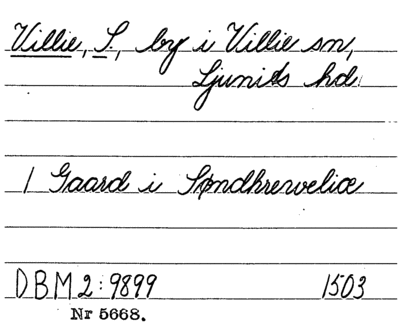 Villie, S., by i Villie sn,
Ljunits hd.
1 Gaard i Søndhrerveliæ
DBM 2:9899 1503
Nr 5668.